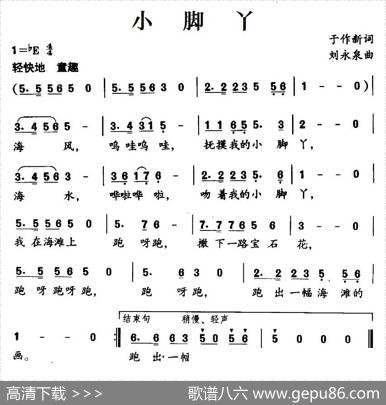 小 脚 丫
于作新词
刘永泉曲
1=♭E
轻快地 童趣
(5. 5 5 6 3 0 | 5. 5 5 6 3 0 | 2. 2 2 3 5 5 6 | 1 - - 0) |
3. 4 5 6 3 - | 3. 4 3 1 5 - | 1 1 6 5 5. 3 | 2 - - 0 |
海 风, 呜哇呜 哇, 抚摸我的小 脚 丫,
3. 4 5 6 3 - | 3 6 1 7 6 - | 2. 2 2 3 5 5 6 | 1 - - 0 |
海 水, 哗啦哗 啦, 吻 着我的小脚 丫,
5. 5 5 6 5 0 | 5. 7 6 - | 7. 7 7 6 5 6 | 3 - - 0 |
我 在海滩上 跑 呀跑, 撇 下一路宝 石 花,
5. 5 5 6 5 0 | 5. 6 3 0 | 2. 2 2 3 5 5 6 |
跑 呀跑呀跑, 跑 呀跑, 跑 出一幅海 滩的
结束句 稍慢、轻声
1 - - 0 :‖ 6. 6 6 3 5 5 6 | 5 0 0 0 ‖
画。 跑 出一幅
高清下载 >>>
歌谱八六 www.gepu86.com